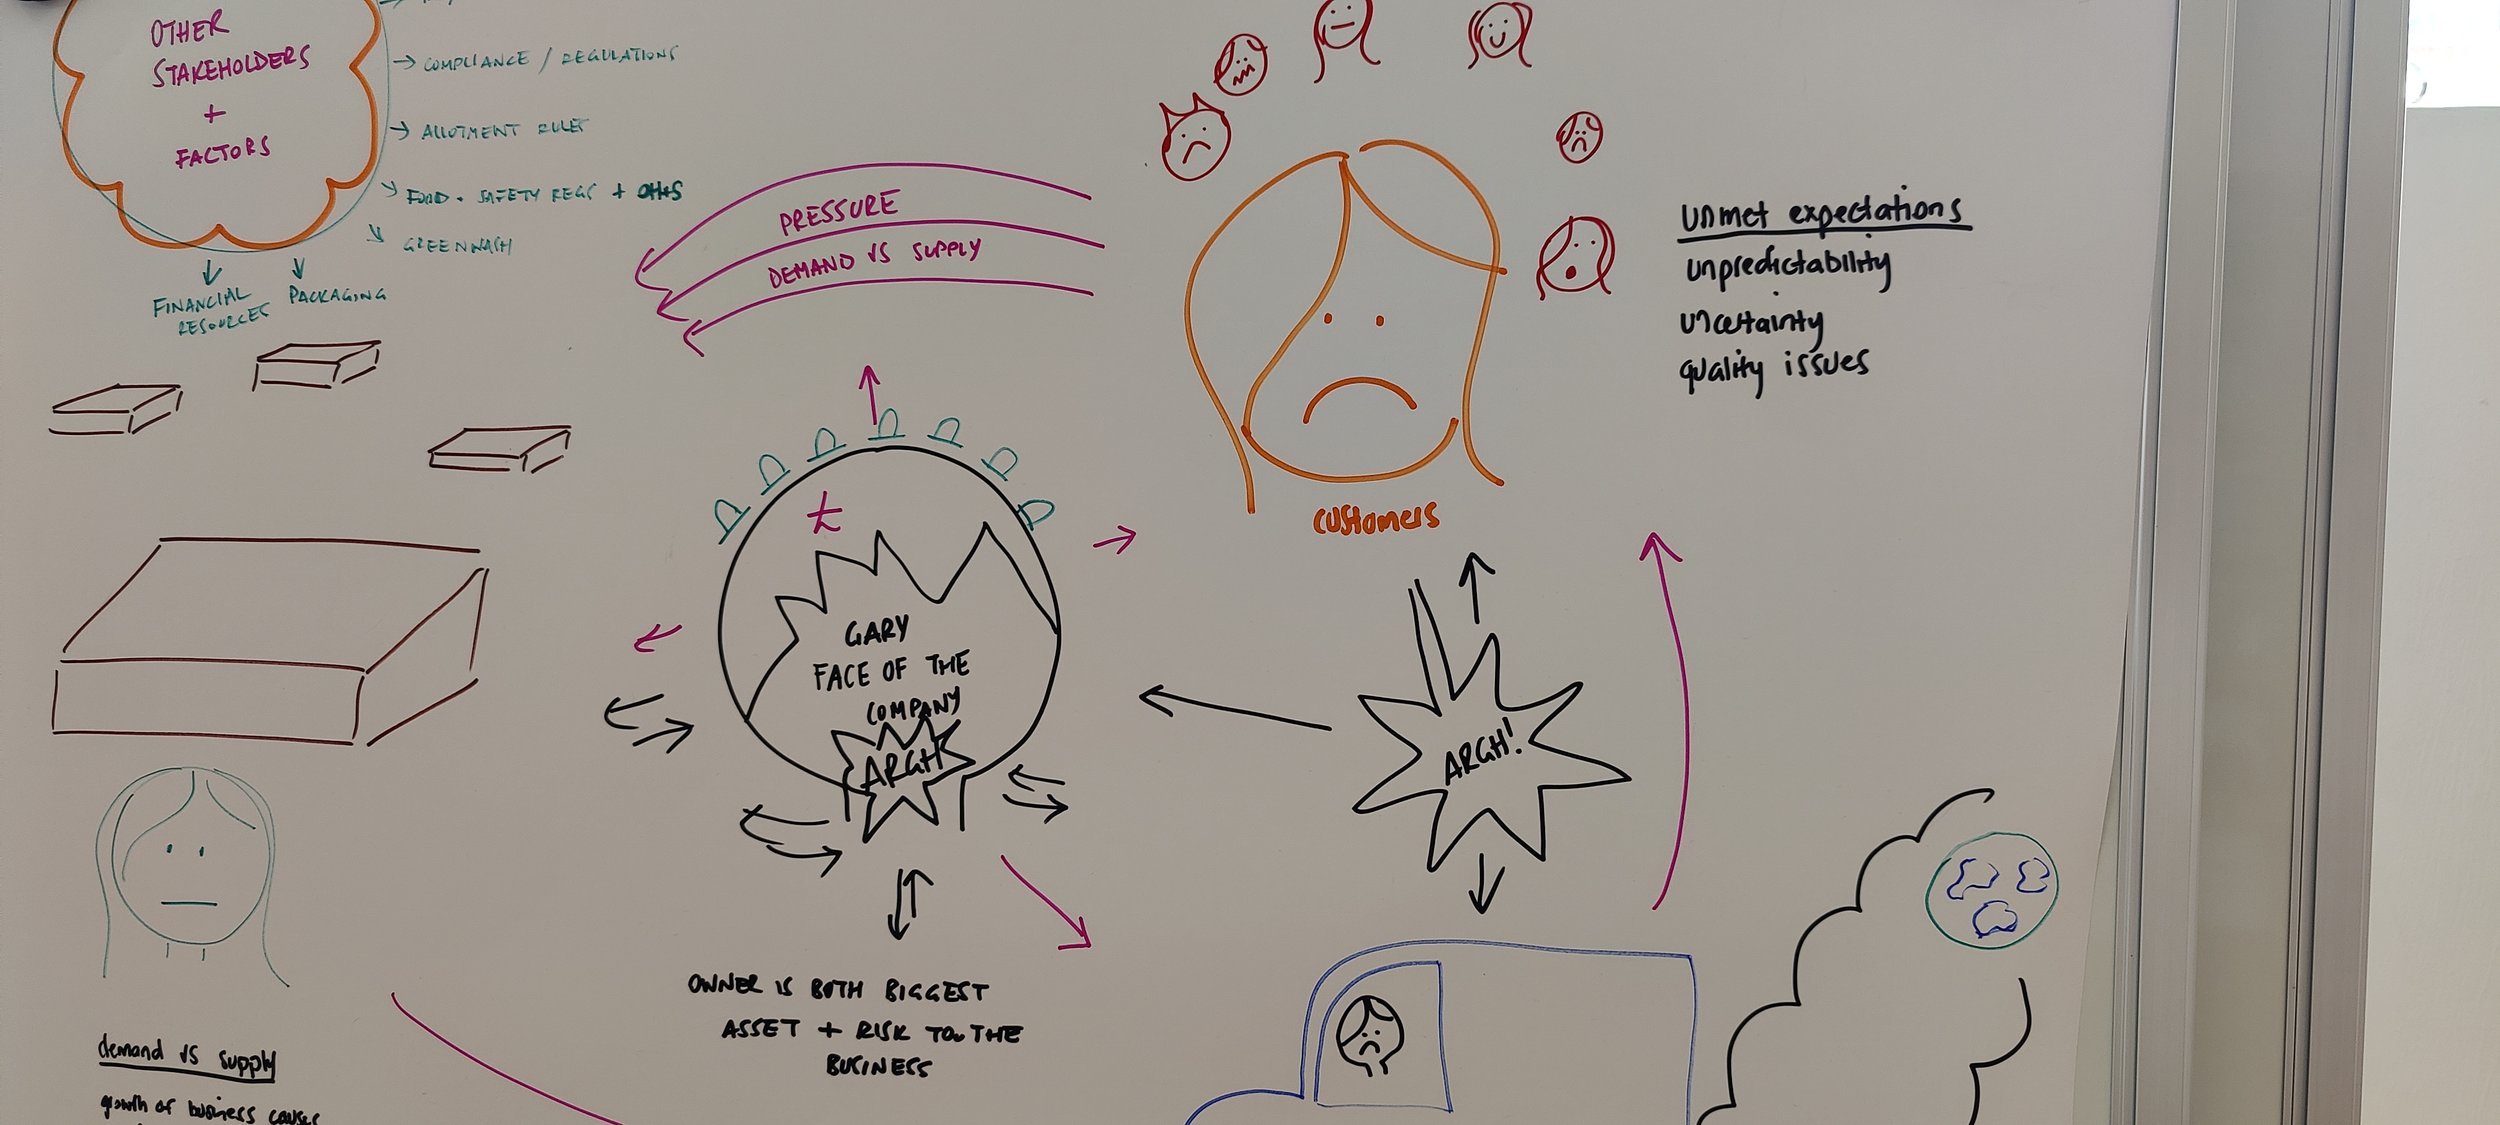 OTHER
STAKEHOLDERS
+
FACTORS
→ COMPLIANCE / REGULATIONS
→ ALLOTMENT RULES
→ FOOD + SAFETY REGS + OH+S
→ GREENWASH
FINANCIAL
RESOURCES
PACKAGING
PRESSURE
DEMAND VS SUPPLY
unmet expectations
unpredictability
uncertainty
quality issues
customers
£
GARY
FACE OF THE
COMPANY
ARGH
ARGH!
OWNER IS BOTH BIGGEST
ASSET + RISK TO THE
BUSINESS
demand vs supply
growth of business causes